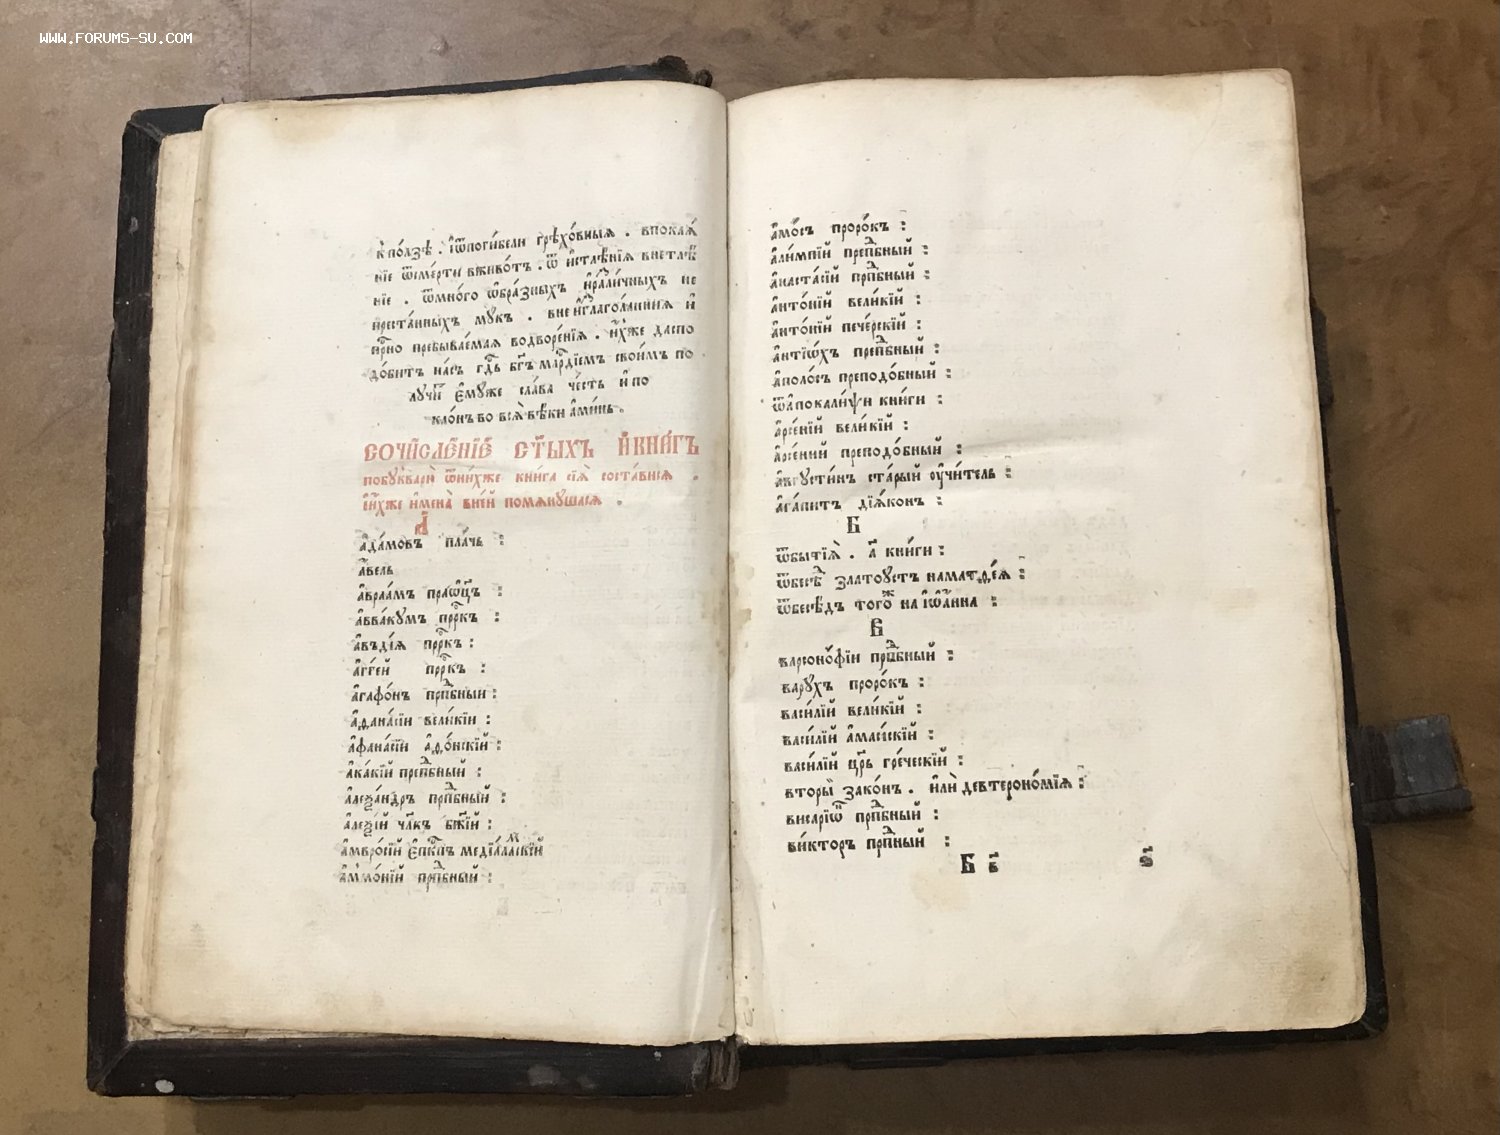 WWW.FORUMS-SU.COM
к̾по́лзѣ . і҆ѿпоги́бели грѣхо́вныѧ . впокаѧ́
нїе ѿсме́рти вживо́тъ . ѿ и҆стлѣ́нїѧ внетлѣ́
нїе . ѿмно́го ѡ҆бра́зныхъ и҆разли́чныхъ не
преста́нныхъ мꙋкъ . вне и҆з̾глаго́ланнаѧ и҆
при́сно пребыва́емаѧ водворе́нїѧ . и҆́хже даспо
до́битъ на́съ гдⷭ҇ь бг҃ъ мⷭ҇рдїемъ свои́мъ по
лꙋчи́ти є҆мꙋже сла́ва че́сть и҆ по
кло́нъ во всѧ̀ вѣ́ки а҆ми́нь .
СОЧИ́СЛЕНЇЕ СТ҃ЫХЪ И҆КНИ́ГЪ
побꙋ́кварю̀ ѿни́хже кни́га сїѧ̀ соста́висѧ .
и҆и҆́хже и҆мена̀ вне́й помѧнꙋшасѧ .
А҆
а҆да́мовъ пла́чь :
а҆́вель
а҆враа́мъ праѻ҆ц҃ъ :
а҆вва́кꙋмъ прⷪ҇ркъ :
а҆въді́ѧ прⷪ҇ркъ :
а҆гге́й прⷪ҇ркъ :
а҆гафо́нъ прпⷣбный :
а҆фана́сїи вели́кїи :
а҆фана́сїи а҆фо́нскїй :
а҆ка́кїй препⷣбный :
а҆леѯа́ндръ прпⷣбный :
а҆леѯі́й чл҃къ бж҃їй :
а҆мвро́сїй є҆пⷭ҇кпъ медїѡла́мскїй
а҆ммо́нїй прпⷣбный :
а҆мо́съ проро́къ :
а҆ли́мпїй препⷣбный :
а҆наста́сїй прпⷣбный :
а҆нто́нїй вели́кїй :
а҆нто́нїй пече́рскїй :
а҆нтїѡ́хъ препⷣбный :
а҆поло́съ преподо́бный :
ѿа҆покали́ѱи кни́ги :
а҆рсе́нїй вели́кїй :
а҆рсе́ний преподо́бный :
а҆вгꙋсти́нъ ста́рый ᲂу҆чи́тель :
а҆га́питъ дїѧ́конъ :
Б
ѿбытїѧ̀ . а҃ кни́ги :
ѿбесѣⷣ златоꙋстъ наматѳе́ѧ :
ѿбесѣ́дъ того́ⷤ на і҆ѡа́нна :
В
варсоно́фїи прпⷣбный :
варꙋхъ проро́къ :
васи́лїй вели́кїй :
васи́лїй а҆маси́скїй :
васи́лїй цр҃ь гре́ческїй :
вторы́й зако́нъ . и҆лѝ девтероно́мїѧ :
висарїѡ́ⷩ прпⷣбный :
ви́кторъ прпⷣный :
Б в҃ в҃